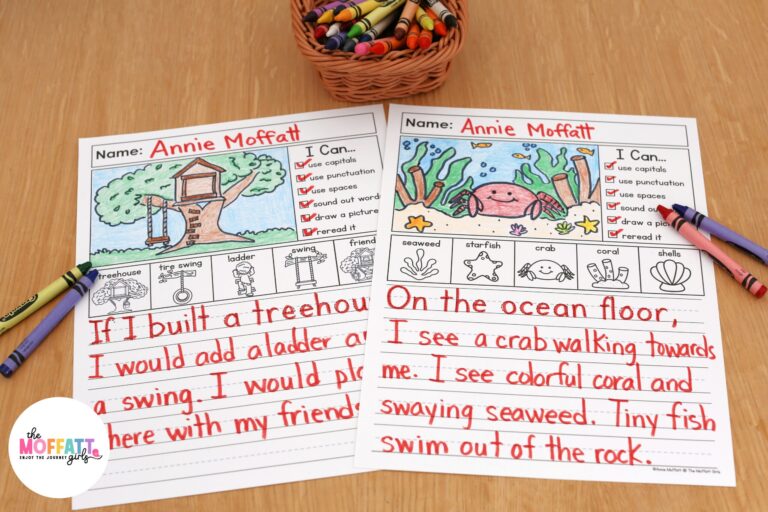 Name: Annie Moffatt
I Can...
use capitals
use punctuation
use spaces
sound out words
draw a picture
reread it
treehouse
tire swing
ladder
swing
If I built a
I would add a ladder
a swing. I would
here with my
Name: Annie Moffatt
I Can...
use capitals
use punctuation
use spaces
sound
draw a
reread it
seaweed
starfish
crab
coral
shells
On the ocean floor,
I see a crab walking towards
me. I see colorful coral and
swaying seaweed. Tiny fish
swim out of the rock.
©Annie Moffatt @ The Moffatt Girls
the
MOFFATT
girls
ENJOY THE JOURNEY